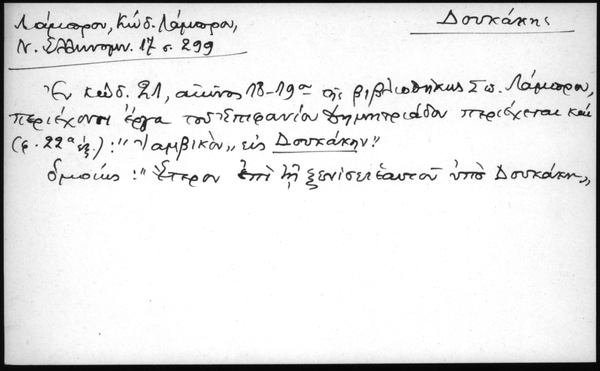 Λάμπρου, Κώδ. Λάμπρου,
Ν. Ἑλληνομν. 17 σ. 299
Δουκάκης
Ἐν κώδ. 21, αἰῶνος 18-19ου τῆς βιβλιοθήκης Σπ. Λάμπρου,
περιέχοντι ἔργα τοῦ Ἐπιφανίου Δημητριάδου περιέχεται καὶ
(φ. 22α ἑξ.): "Ἰαμβικὸν" εἰς Δουκάκην"
ὁμοίως: "Ἕτερον ἐπὶ τῇ ξενίσει ἑαυτοῦ ὑπὸ Δουκάκη"